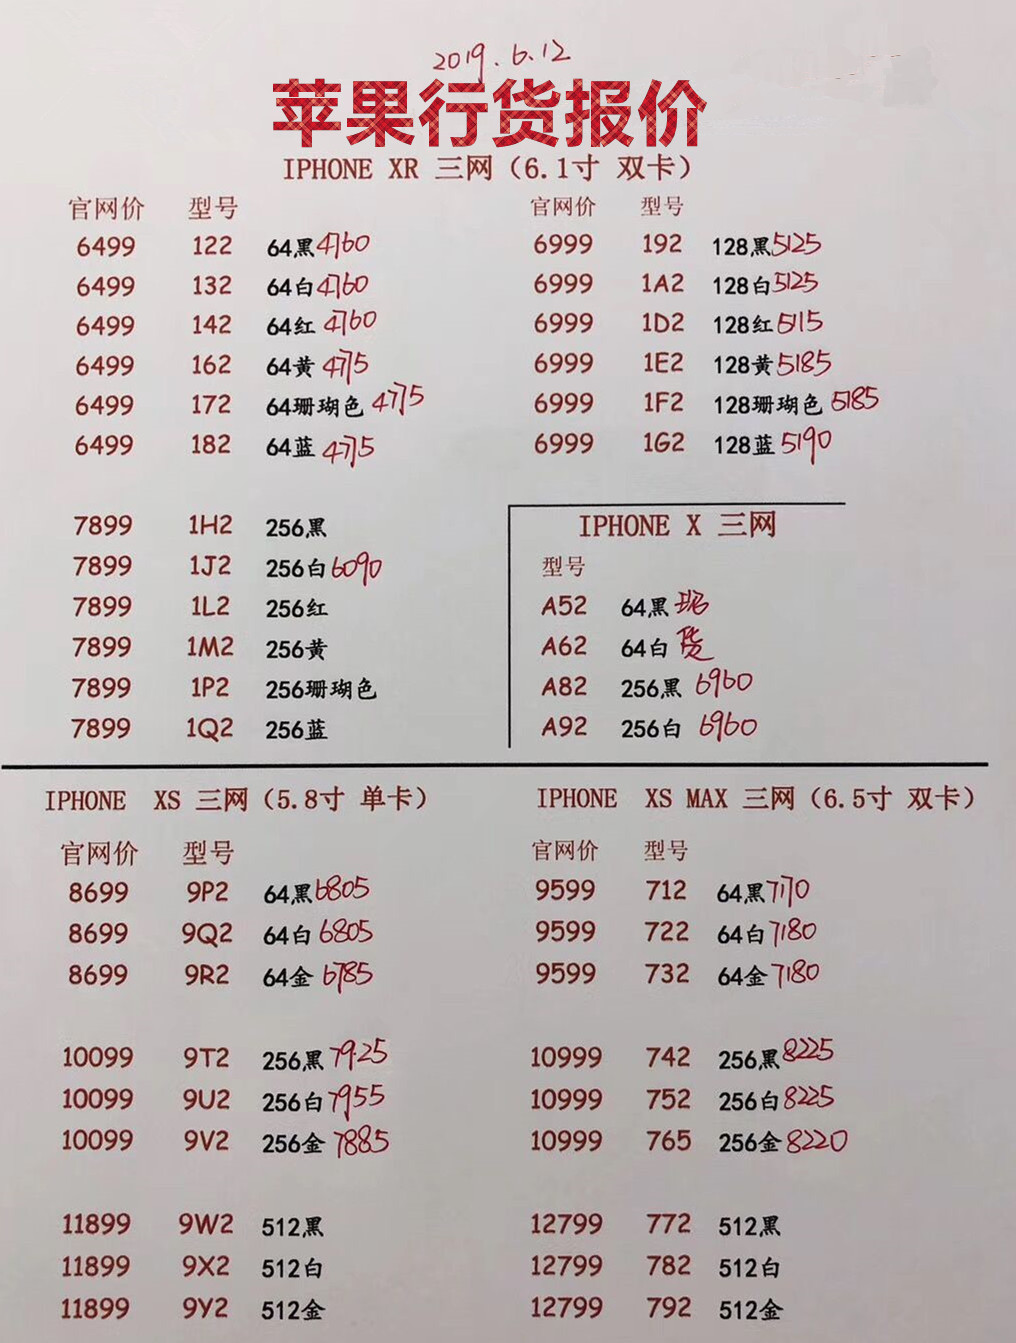 2019.6.12
苹果行货报价
IPHONE XR 三网（6.1寸 双卡）
官网价 型号
6499 122 64黑 4760
6499 132 64白 4760
6499 142 64红 4760
6499 162 64黄 4775
6499 172 64珊瑚色 4775
6499 182 64蓝 4775
官网价 型号
6999 192 128黑 5125
6999 1A2 128白 5125
6999 1D2 128红 5115
6999 1E2 128黄 5185
6999 1F2 128珊瑚色 5185
6999 1G2 128蓝 5190
7899 1H2 256黑
7899 1J2 256白 6090
7899 1L2 256红
7899 1M2 256黄
7899 1P2 256珊瑚色
7899 1Q2 256蓝
IPHONE X 三网
型号
A52 64黑 现
A62 64白 货
A82 256黑 6960
A92 256白 6960
IPHONE XS 三网（5.8寸 单卡）
官网价 型号
8699 9P2 64黑 6805
8699 9Q2 64白 6805
8699 9R2 64金 6785
10099 9T2 256黑 7925
10099 9U2 256白 7955
10099 9V2 256金 7885
11899 9W2 512黑
11899 9X2 512白
11899 9Y2 512金
IPHONE XS MAX 三网（6.5寸 双卡）
官网价 型号
9599 712 64黑 7170
9599 722 64白 7180
9599 732 64金 7180
10999 742 256黑 8225
10999 752 256白 8225
10999 765 256金 8220
12799 772 512黑
12799 782 512白
12799 792 512金